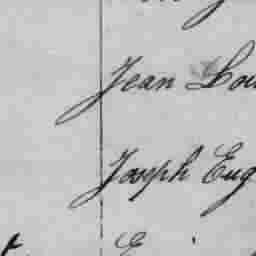 Jean Lou
Joseph Eug